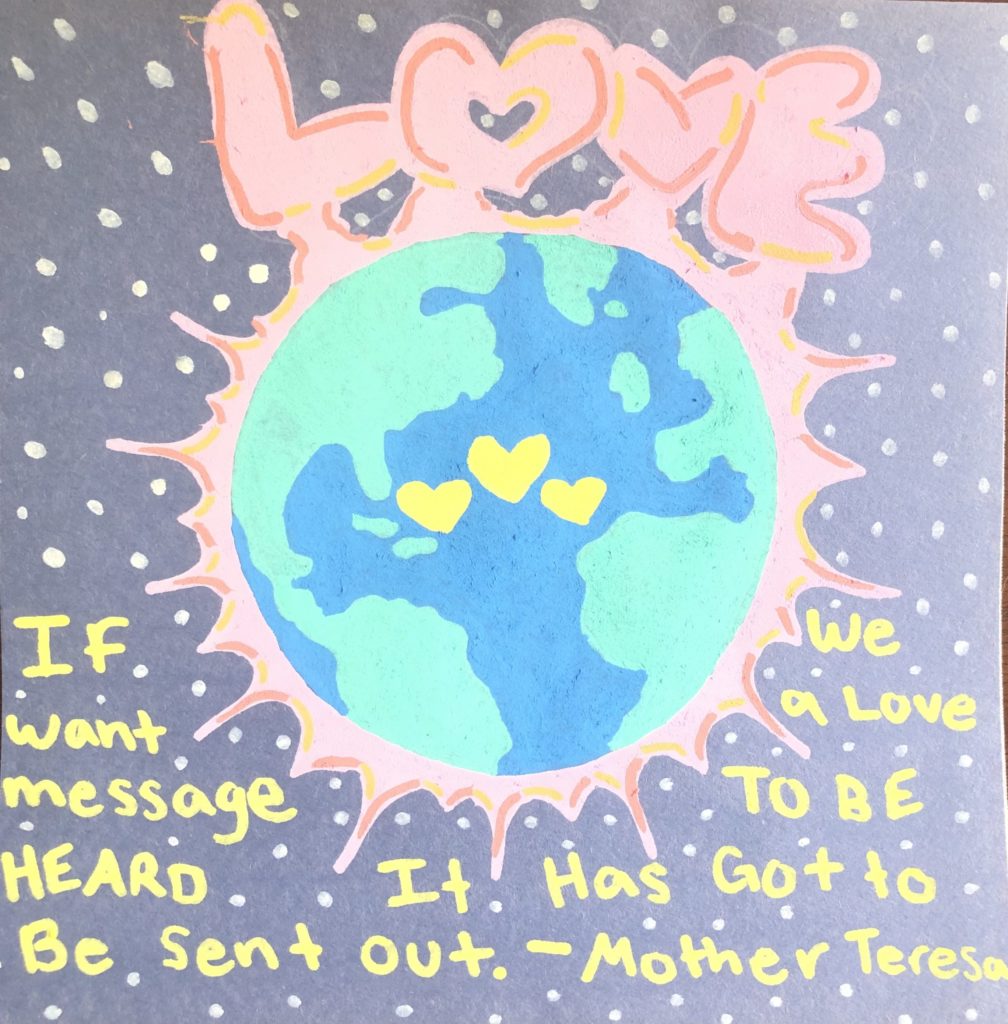 LOVE
If We
want a Love
message TO BE
HEARD It Has Got to
Be Sent out. - Mother Teresa